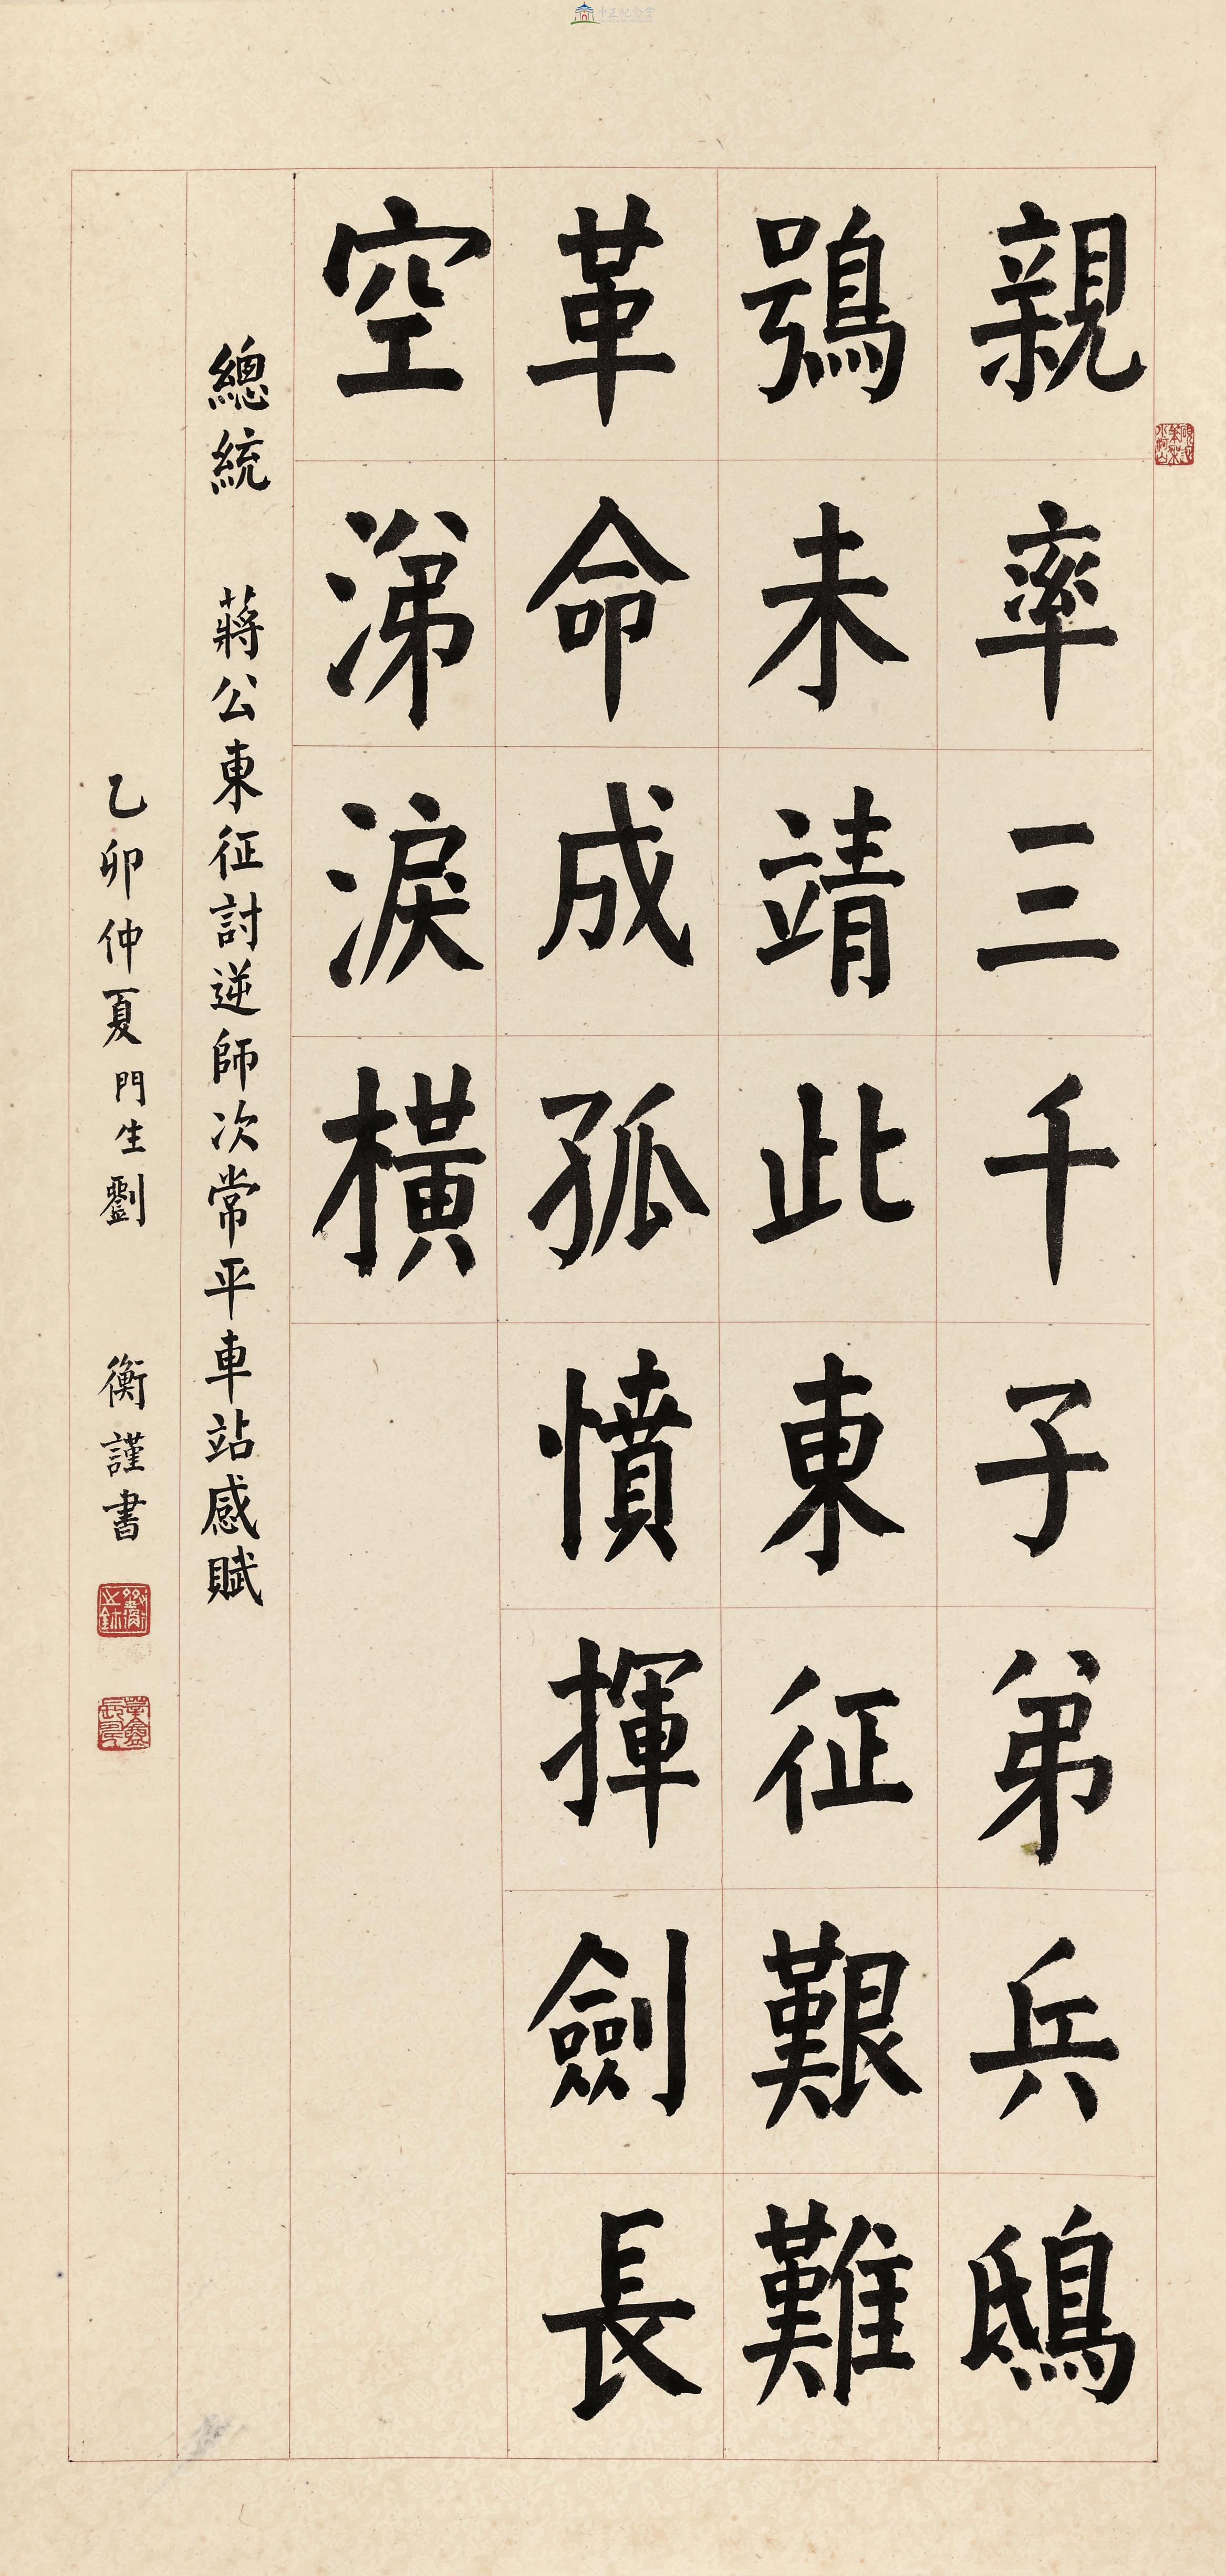 親率三千子弟兵鴟
鴞未靖此東征艱難
革命成孤憤揮劍長
空涕淚橫
總統 蔣公東征討逆師次常平車站感賦
乙卯仲夏門生劉 衡謹書
中正紀念堂